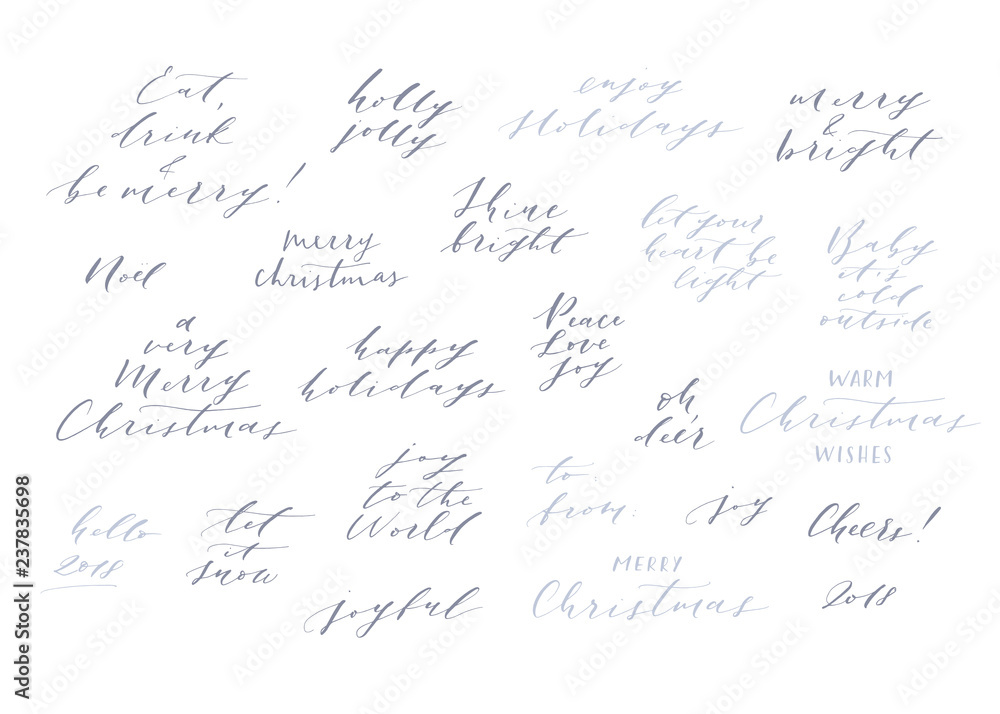 Eat,
drink
&
be merry!
holly
jolly
enjoy
Holidays
merry
&
bright
Shine
bright
let your
heart be
light
Baby
it's
cold
outside
Noël
merry
christmas
a
very
Merry
Christmas
happy
holidays
Peace
Love
Joy
oh,
deer
WARM
Christmas
WISHES
joy
to the
World
to
from:
joy
Cheers!
hello
2018
let
it
snow
joyful
MERRY
Christmas
2018
Adobe Stock | #237835698